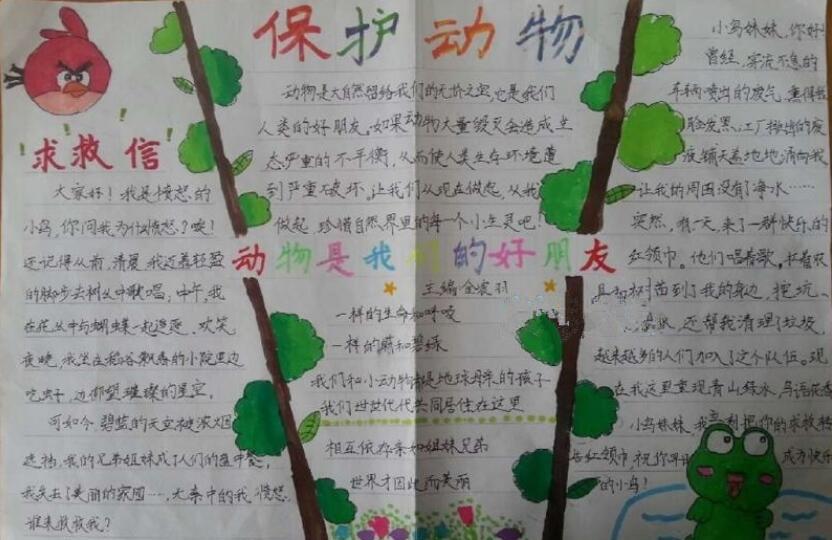 保护动物
动物是大自然留给我们的无价之宝,它是我们
人类的好朋友,如果动物大量毁灭会造成生
态严重的不平衡,从而使人类生存环境遭
到严重破坏。让我们从现在做起,从我
做起,珍惜自然界里的每一个小生灵吧!
求救信
大家好!我是愤怒的
小鸟,你问我为什么愤怒?唉!
还记得从前,清晨,我迈着轻盈
的脚步去树丛中歌唱;中午,我
在花丛中与蝴蝶一起追逐、欢笑
夜晚,我坐在稻谷飘香的小院里边
吃虫子,边都望璀璨的星空。
可如今,碧蓝的天空被浓烟
遮挡,我的兄弟姐妹成了人们的盘中餐,
我失去了美丽的家园……,大气中的我愤怒
谁来救救我?
动物是我们的好朋友
主编
一样的生命和呼吸
一样的
我们和小动物都是地球母亲的孩子
我们世世代代共同居住在这里
相互依存亲如姐妹兄弟
世界才因此而美丽
小鸟妹妹,你好!
曾经,穿流不息的
车辆喷出的废气,熏得我
脸发黑,工厂排出的废
铺天盖地地涌向我
让我的周围没有了海水……
突然,有一天,来了一群快乐的
红领巾。他们唱着歌,扛着
树苗到了我的身边,挖坑、
浇水,还帮我清理了垃圾,
越来越多的人们加入了这个队伍。现
在我这里重现青山绿水,鸟语花香
小鸟妹妹,我 把你的求救转
红领巾,祝你早 成为快乐
的小鸟!